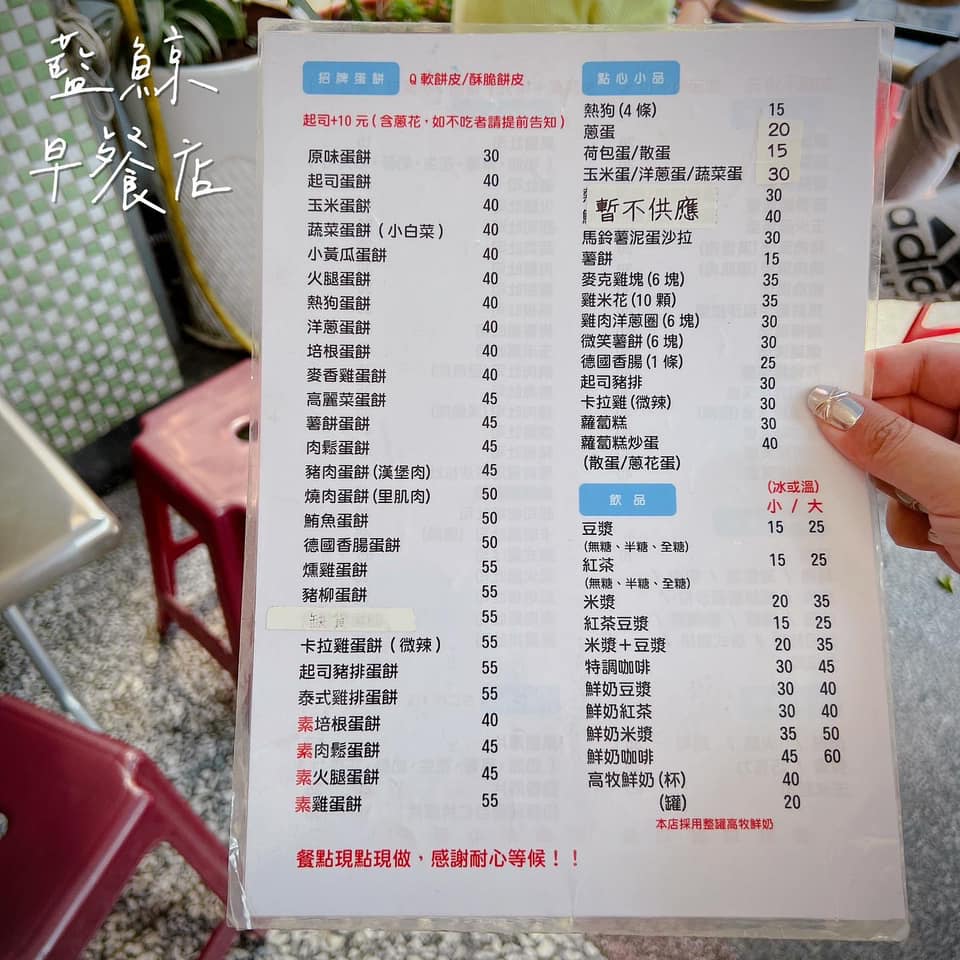 藍鯨
早餐店
招牌蛋餅 Q軟餅皮/酥脆餅皮
起司+10元(含蔥花,如不吃者請提前告知)
原味蛋餅 30
起司蛋餅 40
玉米蛋餅 40
蔬菜蛋餅(小白菜) 40
小黃瓜蛋餅 40
火腿蛋餅 40
熱狗蛋餅 40
洋蔥蛋餅 40
培根蛋餅 40
麥香雞蛋餅 40
高麗菜蛋餅 45
薯餅蛋餅 45
肉鬆蛋餅 45
豬肉蛋餅(漢堡肉) 45
燒肉蛋餅(里肌肉) 50
鮪魚蛋餅 50
德國香腸蛋餅 50
燻雞蛋餅 55
豬柳蛋餅 55
缺貨 55
卡拉雞蛋餅(微辣) 55
起司豬排蛋餅 55
泰式雞排蛋餅 55
素培根蛋餅 40
素肉鬆蛋餅 45
素火腿蛋餅 45
素雞蛋餅 55
餐點現點現做,感謝耐心等候!!
點心小品
熱狗(4條) 15
蔥蛋 20
荷包蛋/散蛋 15
玉米蛋/洋蔥蛋/蔬菜蛋 30
暫不供應 30
40
馬鈴薯泥蛋沙拉 30
薯餅 15
麥克雞塊(6塊) 35
雞米花(10顆) 35
雞肉洋蔥圈(6塊) 30
微笑薯餅(6塊) 30
德國香腸(1條) 25
起司豬排 30
卡拉雞(微辣) 30
蘿蔔糕 30
蘿蔔糕炒蛋 40
(散蛋/蔥花蛋)
飲品 (冰或溫)
小 / 大
豆漿 15 25
(無糖、半糖、全糖)
紅茶 15 25
(無糖、半糖、全糖)
米漿 20 35
紅茶豆漿 15 25
米漿+豆漿 20 35
特調咖啡 30 45
鮮奶豆漿 30 40
鮮奶紅茶 30 40
鮮奶米漿 35 50
鮮奶咖啡 45 60
高牧鮮奶(杯) 40
(罐) 20
本店採用整罐高牧鮮奶
adidas